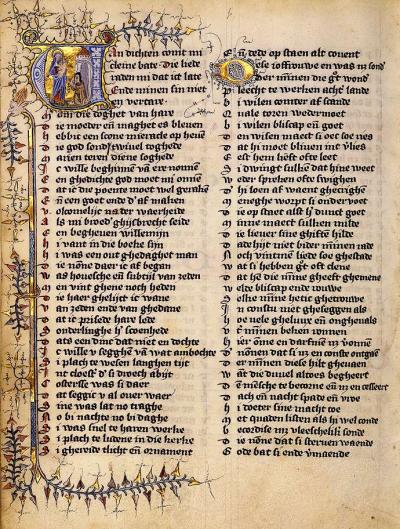 Van dichten comt mi
cleine bate. Die liede
raden mi dat ict late
Ende minen sin niet
en vertare
Maer om die doghet van hare
Die moeder en̄ maghet es bleven
Hebbic een scone miracle op heven
Die god sond' twivel toghede
Marien teren diene soghede
Ic wille beghinnen vā ere nonnen
Een ghedichte god moet mi onnen
Dat ic die poente moet wel geraken
En̄ een goet ende d' af maken
Volcomelijc na der waerheide
Als mi broed' ghijsbrecht seide
Een begheven willemijn
Hi vant in die boeke sijn
Hi was een out ghedaghet man
Die nōne daer ic af began
Was hovesche en̄ subtijl van zeden
Men vint ghene noch heden
Die haer ghelijct ic wane
Van zeden ende van ghedane
Dat ic prisede hare lede
Sonderlinghe h' scoenhede
Dats een dinc dat niet en dochte
Ic wille v segghē vā wat ambochte
Si plach te wesen langhen tijt
Int cloest' d' si droech abijt
Costersse was si daer
Dat seggic v al over waer
Sine was lat no traghe
No bi nachte no bi daghe
Si was snel te haren werke
Si plach te ludene in die kerke
Si ghereide tlicht en̄ ornament
En̄ dede op staen alt covent
Dese ioffrouwe en was niet sond'
Der minnen die g°t wond'
Pleecht te werken acht' lande
Bi wilen comter af scande
Quale toren wedermoet
Bi wilen bliscap en̄ goet
Den wisen maect si oec soe ries
Dat hi moet bliven int v'lies
Eest hem lieft ofte leet
Si dwingt sulken dat hine weet
Weder sprekē ofte swighen
Daer hi loen af waent ghecrighē
Meneghe worpt si onder voet
Die op staet alst h' dunct goet
Minne maect sulken milde
Die liever sine ghiften hilde
Dade hijt niet bider minnen rade
Noch vintmē liede soe ghestade
Wat si hebben g°t oft clene
Dat hē die minne gheeft ghemene
Welde bliscap ende rouwe
Selke minne hetic ghetrouwe
In constu niet gheseggen als
Hoe vele gheluux en̄ onghevals
Vt' minnen beken ronnen
Hier ōme en darfmē niet v'onnen
Der nōnen dat si niet en conste ontgaen
Der minnen diese hilt ghevaen
Want die duvel altoes begheert
Den mēsche te becorne en̄ niet en cesseert
Dach en̄ nacht spade en̄ vroe
Hi doeter sine macht toe
Met quaden listen als hi wel conde
Becordise met vleeschelik' sonde
Die nōne dat si sterven waende
Gode bat si ende v'maende